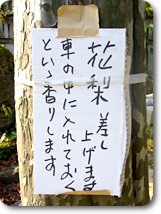 花梨差し
上げます
車の中に入れておく
といゝ香りします